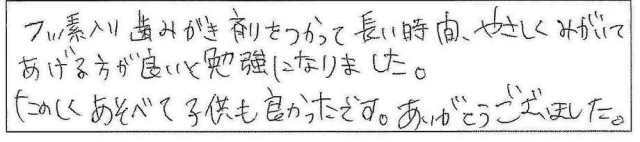 フッ素入り歯みがき剤をつかって長い時間、やさしくみがいて
あげる方が良いと勉強になりました。
たのしくあそべて子供も良かったです。ありがとうございました。